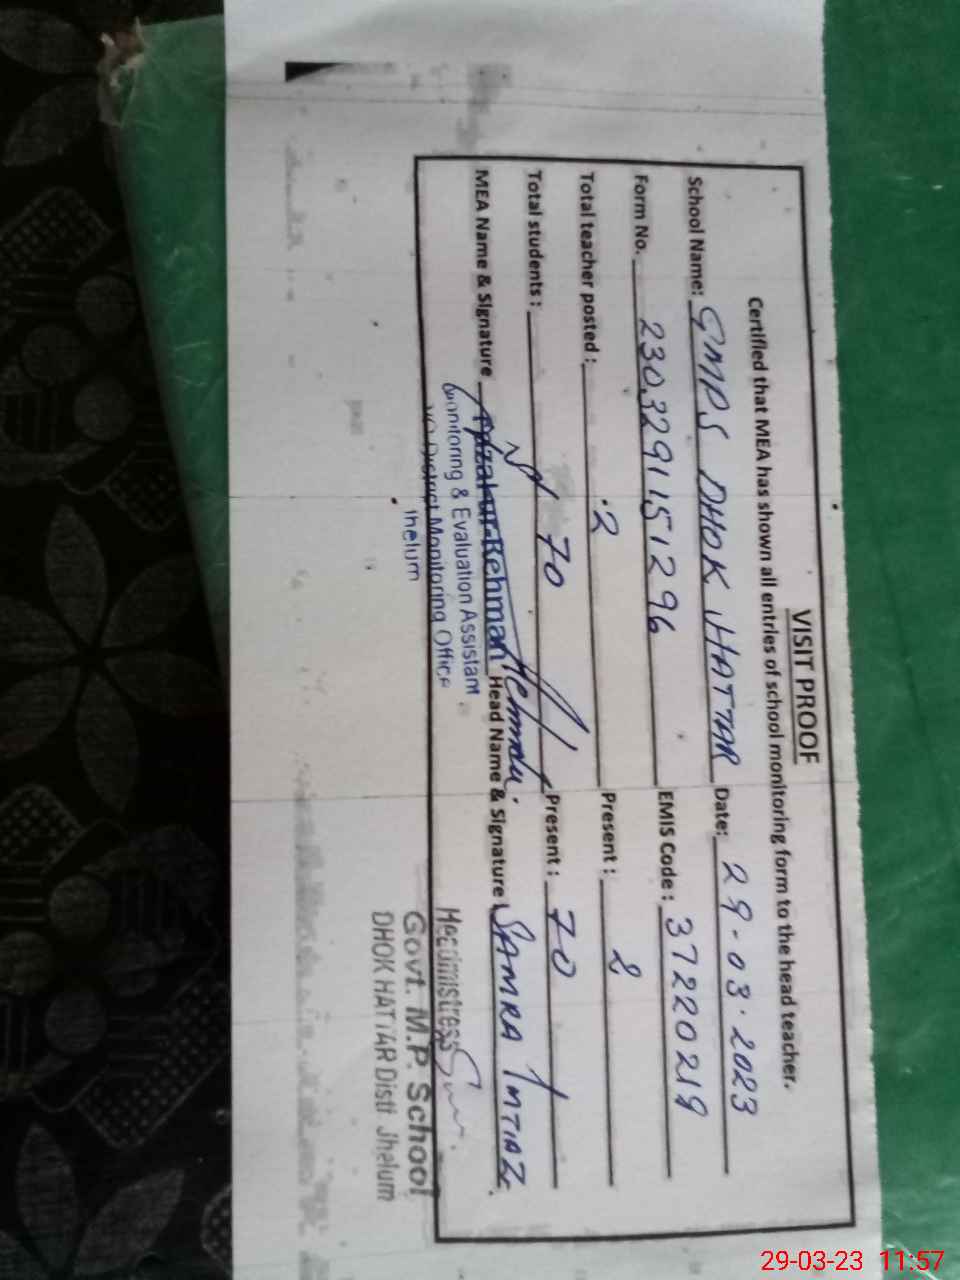 VISIT PROOF
Certified that MEA has shown all entries of school monitoring form to the head teacher.
School Name: GMPS DHOK HATTAR Date: 29-03-2023
Form No. 2303291151296 EMIS Code: 37220219
Total teacher posted: 2 Present: 2
Total students: 70 Present: 70
MEA Name & Signature Rehman Head Name & Signature SAMRA IMTIAZ
Monitoring & Evaluation Assistant
District Monitoring Office
Jhelum
Headmistress
Govt. M.P. School
DHOK HATTAR Distt Jhelum
29-03-23 11:57